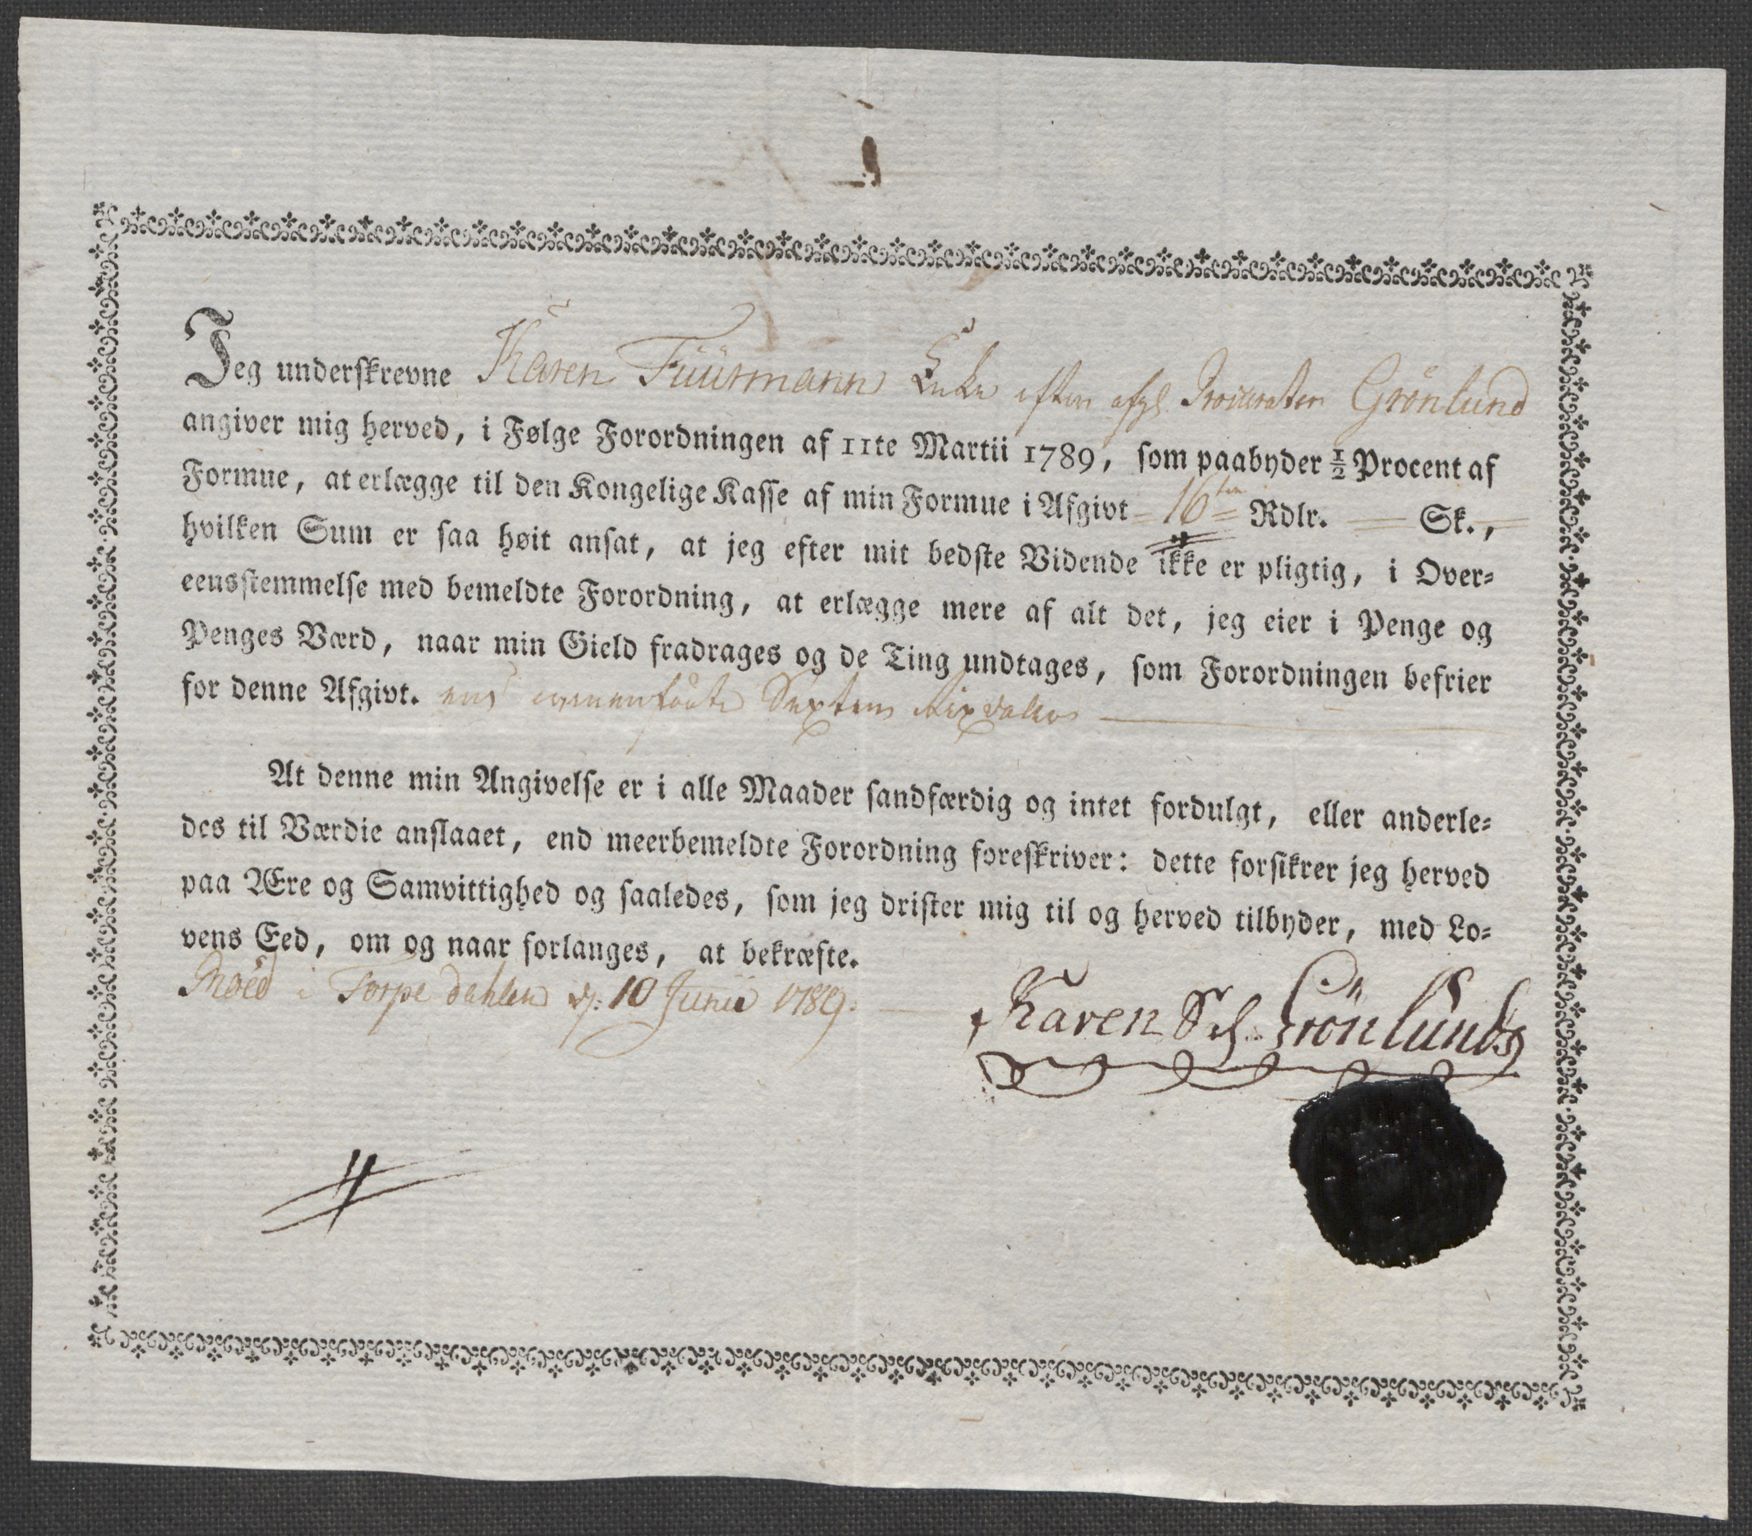 Jeg underskrevne Karen Füürmann Enke efter afg. Procurator Grönlund
angiver mig herved, i Følge Forordningen af 11te Martii 1789, som paabyder ½ Procent af
Formue, at erlægge til den Kongelige Kasse af min Formue i Afgivt 16 Rdlr. — Sk.,
hvilken Sum er saa høit ansat, at jeg efter mit bedste Vidende ikke er pligtig, i Over-
eensstemmelse med bemeldte Forordning, at erlægge mere af alt det, jeg eier i Penge og
Penges Værd, naar min Gield fradrages og de Ting undtages, som Forordningen befrier
for denne Afgivt. Sexten Rixdaler
At denne min Angivelse er i alle Maader sandfærdig og intet fordulgt, eller anderle-
des til Værdie anslaaet, end meerbemeldte Forordning foreskriver: dette forsikrer jeg herved
paa Ære og Samvittighed og saaledes, som jeg drister mig til og herved tilbyder, med Lo-
vens Eed, om og naar forlanges, at bekræfte.
i Torpe dahlen d: 10 Junii 1789.
Karen Sl. Grönlunds